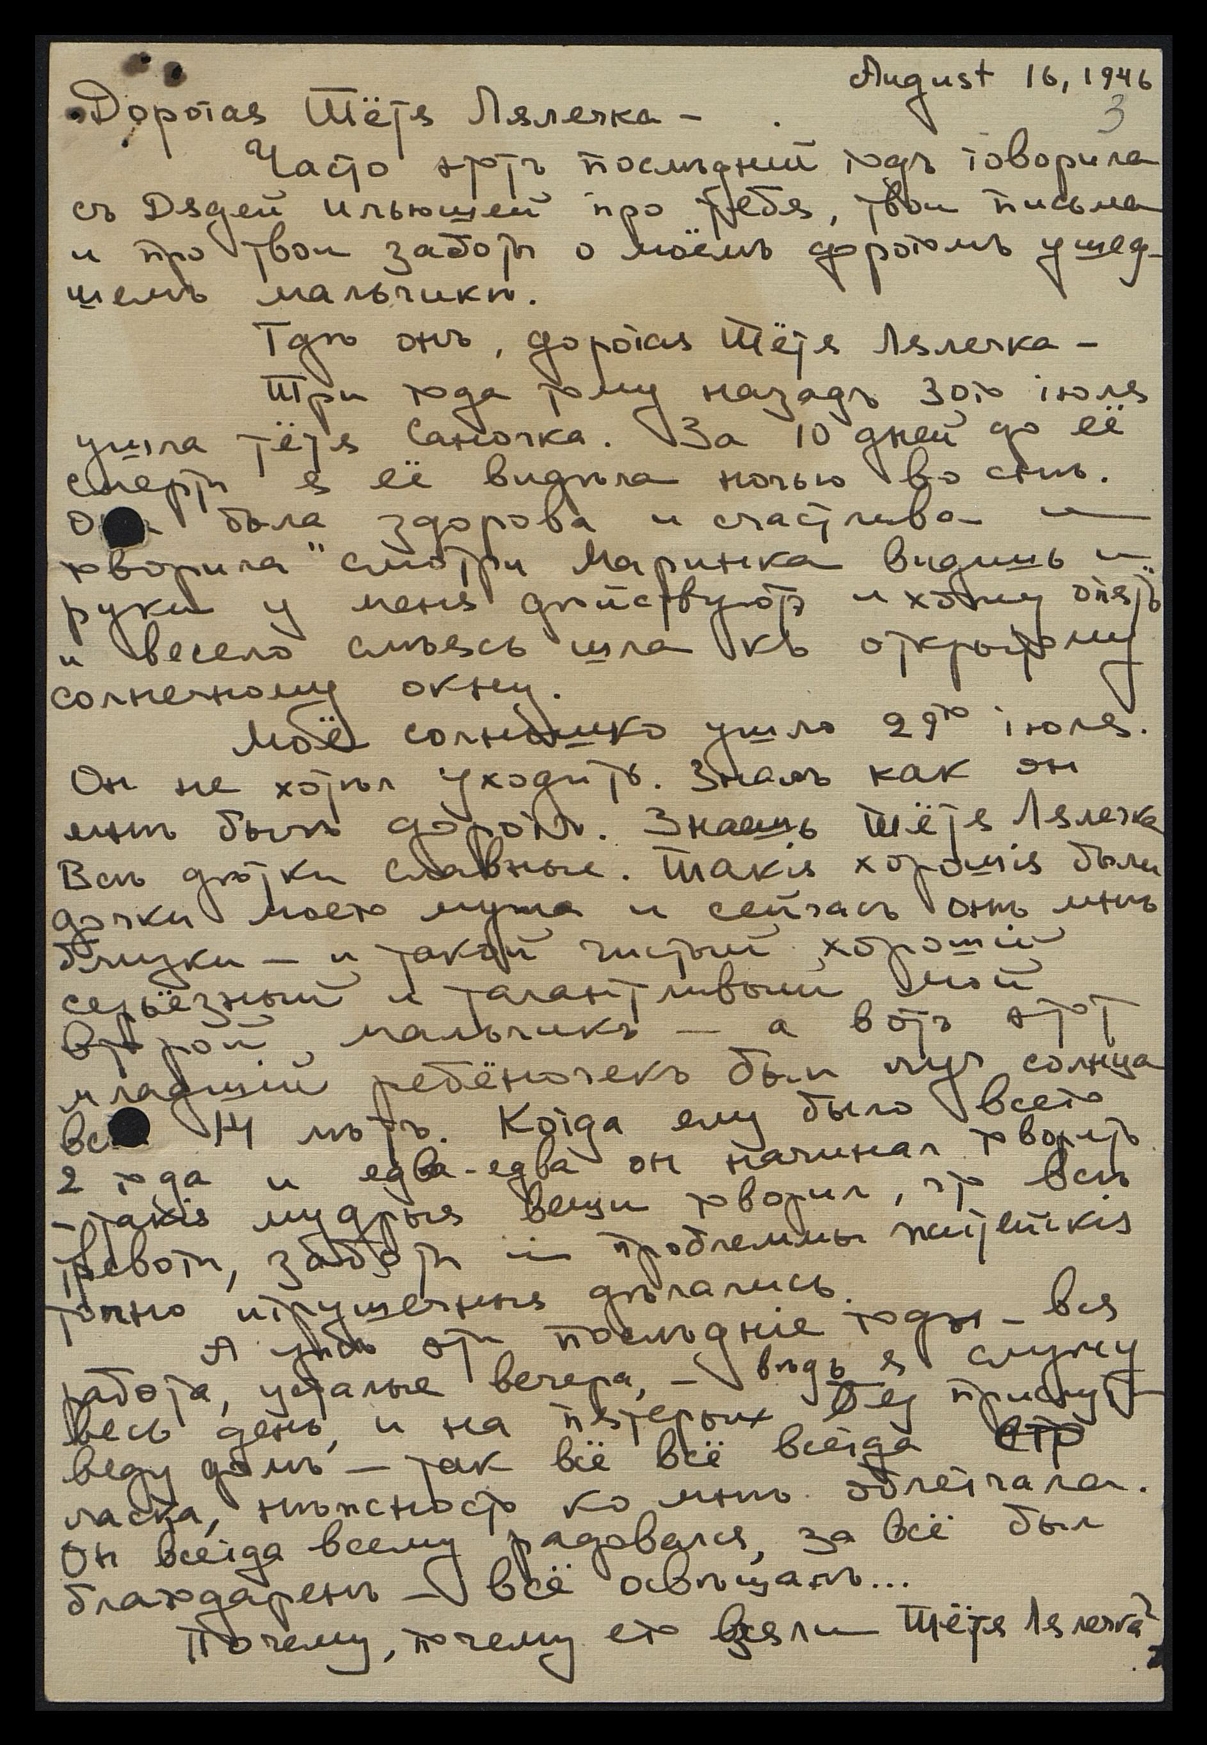 August 16, 1946
3
Дорогая Тётя Лялечка –
Часто этотъ послѣдній годъ говорила
съ Дядей Ильюшей про тебя, твои письма
и про твои заботы о моёмъ дорогомъ ушед-
шемъ мальчикѣ.
Гдѣ онъ, дорогая Тётя Лялечка –
Три года тому назадъ 30го іюля
ушла тётя Саночка. За 10 дней до её
смерти я её видѣла ночью во снѣ.
Она была здорова и счастлива и
говорила "смотри Маринка видишь и
руки у меня дѣйствуютъ и хожу опять"
и весело смѣясь шла къ открытому
солнечному окну.
Моё солнышко ушло 29го іюля.
Он не хотѣл уходить. Зналъ как он
мнѣ былъ дорогъ. Знаешь Тётя Лялечка
Всѣ дѣтки славные. Такія хорошія были
дочки моего мужа и сейчасъ онѣ мнѣ
близки – и такой чистый хорошій
серьёзный и талантливый мой
второй мальчикъ – а вотъ этот
младшій ребёночекъ был луч солнца
все 14 лѣтъ. Когда ему было всего
2 года и едва-едва он начинал говорить
– такія мудрыя вещи говорил, что всѣ
тревоги, заботы и проблеммы житейскія
точно игрушечныя дѣлались.
А ужъ эти послѣдніе годы – вся
работа, усталые вечера, – вѣдь я служу
весь день, и на пятерых без прислуги
веду домъ – так всё всё всегда
ласка, нѣжность ко мнѣ облегчала.
Он всегда всему радовался, за всё был
благодаренъ – всё освѣщалъ...
Почему, почему его взяли Тётя Лялечка?